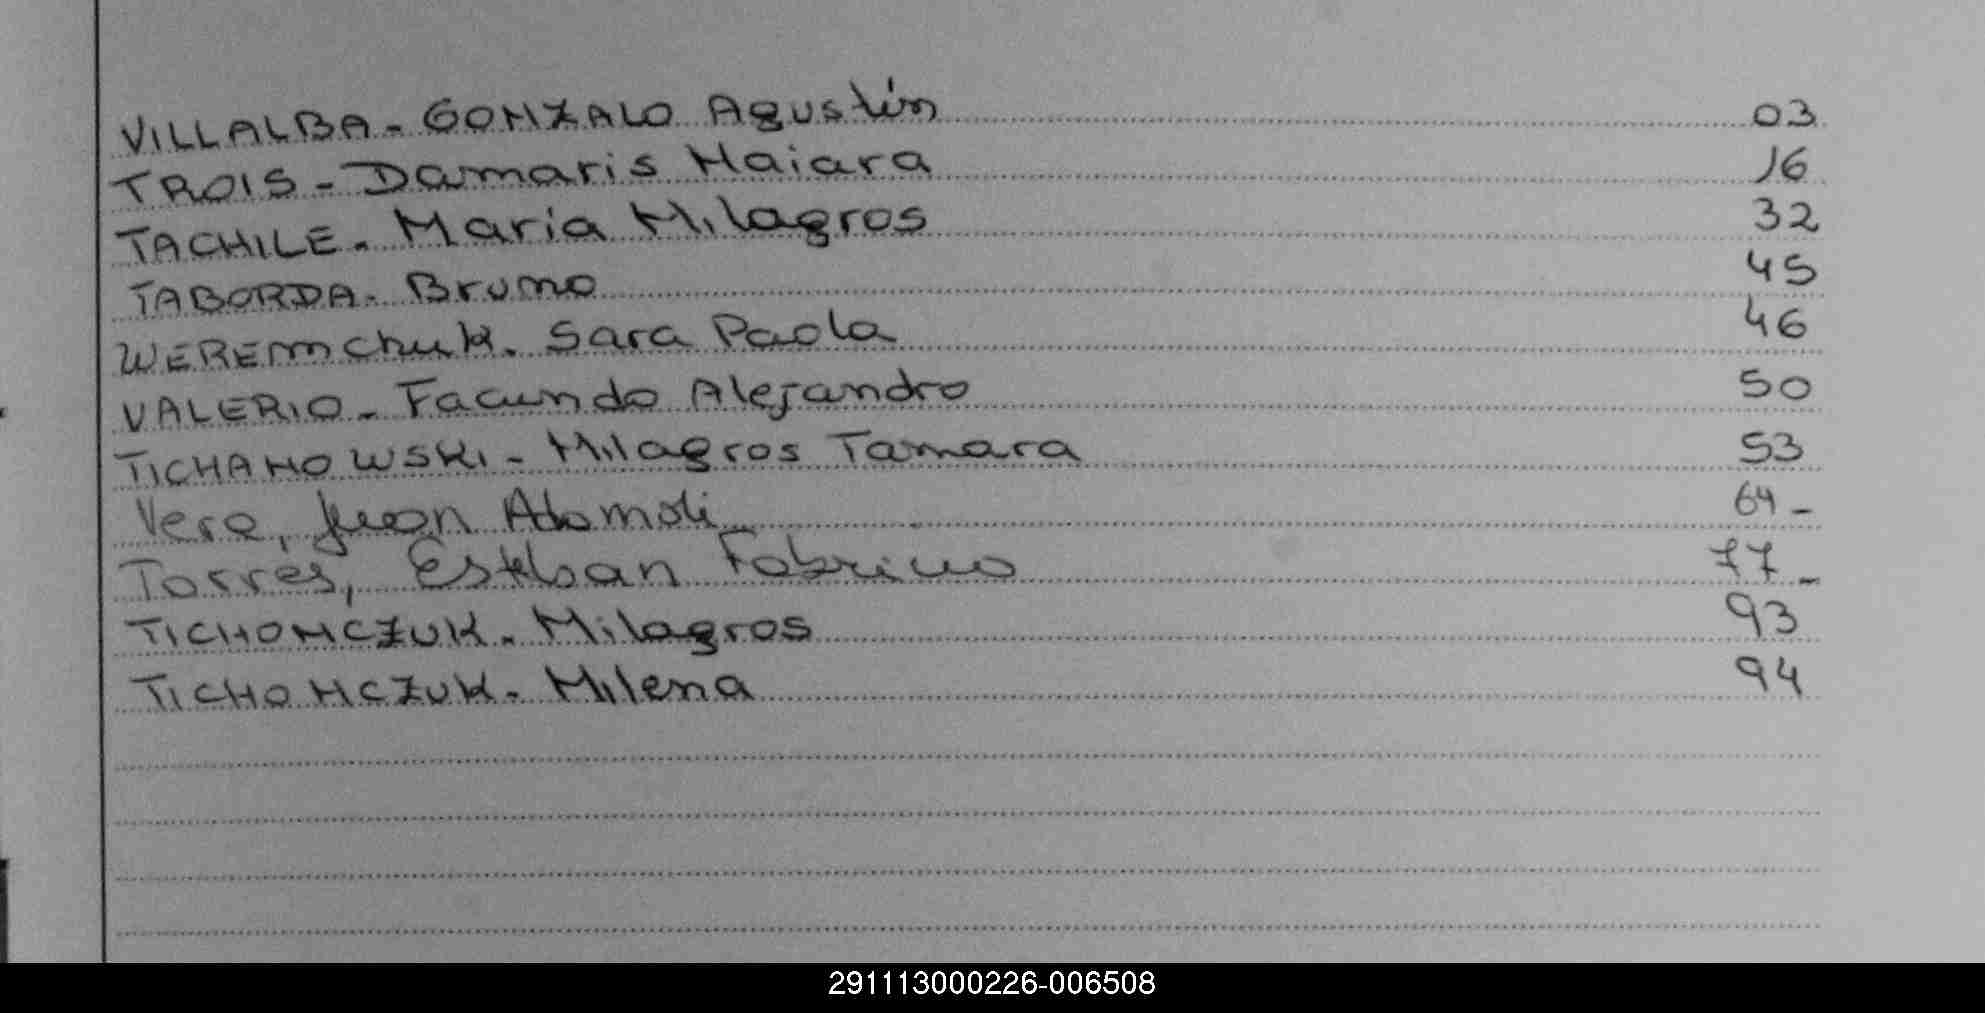 VILLALBA - GONZALO Agustín 03
TROIS - Damaris Naiara 16
TACHILE - Maria Milagros 32
TABORDA - Bruno 45
WEREMCHUK - Sara Paola 46
VALERIO - Facundo Alejandro 50
TICHANOWSKI - Milagros Tamara 53
Vera, Juan 64 -
Torres, Esteban Fabricio 77 -
TICHONCZUK - Milagros 93
TICHONCZUK - Milena 94
291113000226-006508